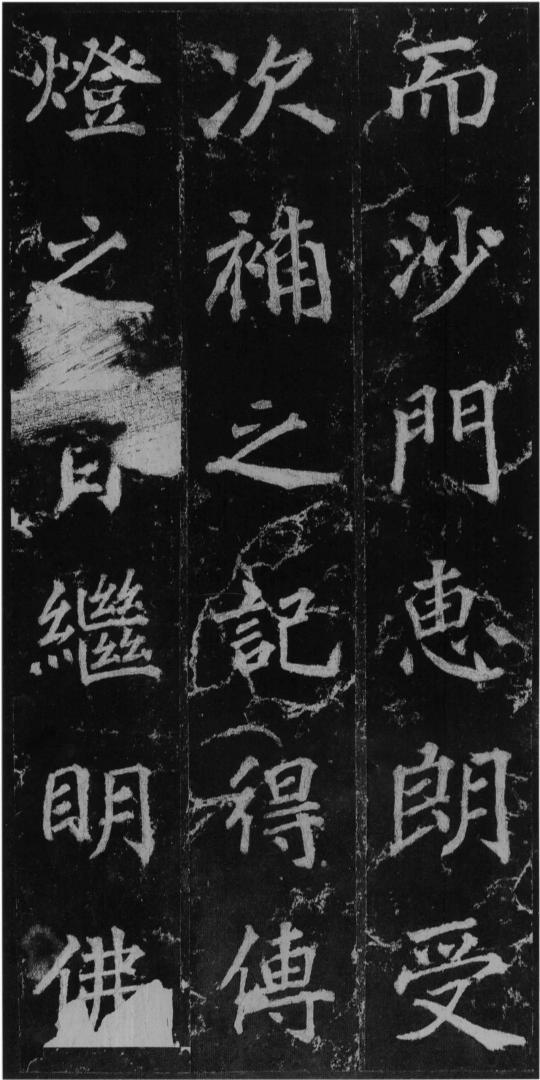 而沙門恵朗受
次補之記得傳
燈之旨繼眀佛